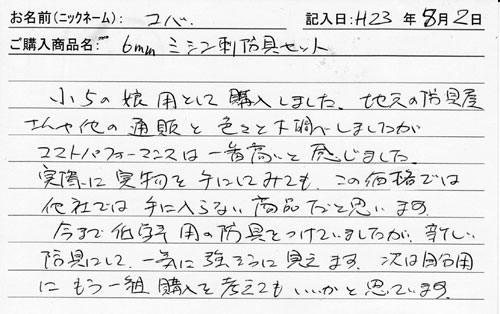 お名前(ニックネーム): コバ. 記入日: H23 年 8月 2日
ご購入商品名: 6mm ミシン刺防具セット
小5の娘用として購入しました。地元の防具屋
さんや他の通販と色々と下調べしましたが
コストパフォーマンスは一番高いと感じました。
実際に実物を手にしてみても、この価格では
他社では手に入らない商品だと思います。
今まで低学年用の防具をつけていましたが、新しい
防具にして、一気に強そうに見えます。次は自分用
にもう一組購入を考えてもいいかと思ています。